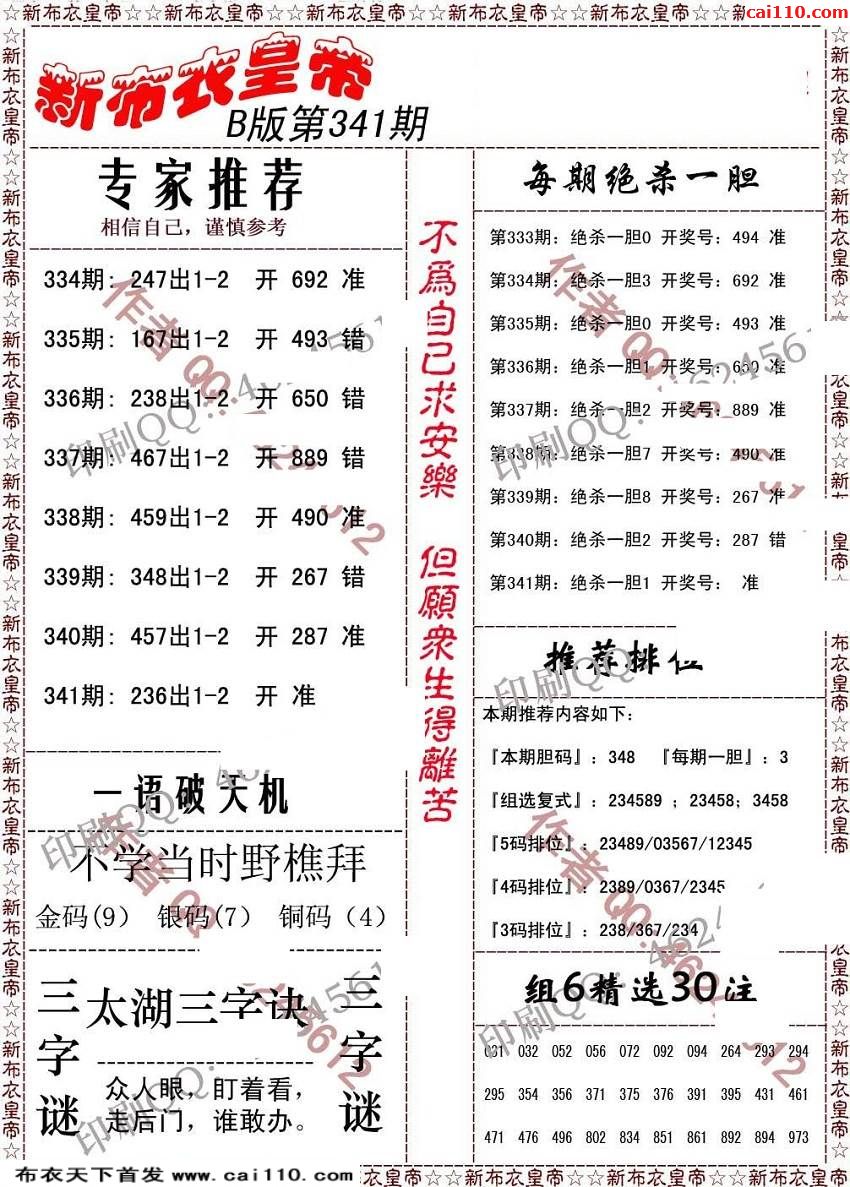 ☆新布衣皇帝☆☆新布衣皇帝☆☆新布衣皇帝☆☆新布衣皇帝☆☆新布衣皇帝☆☆新
cai110.com
新布衣皇帝
B版第341期
专家推荐
相信自己，谨慎参考
334期：247出1-2 开 692 准
335期：167出1-2 开 493 错
336期：238出1-2 开 650 错
337期：467出1-2 开 889 错
338期：459出1-2 开 490 准
339期：348出1-2 开 267 错
340期：457出1-2 开 287 准
341期：236出1-2 开 准
一语破天机
不学当时野樵拜
金码(9) 银码(7) 铜码（4）
三字谜
太湖三字诀
众人眼，盯着看，
走后门，谁敢办。
三字谜
不爲自己求安樂 但願衆生得離苦
每期绝杀一胆
第333期：绝杀一胆0 开奖号：494 准
第334期：绝杀一胆3 开奖号：692 准
第335期：绝杀一胆0 开奖号：493 准
第336期：绝杀一胆1 开奖号：650 准
第337期：绝杀一胆2 开奖号：889 准
第338期：绝杀一胆7 开奖号：490 准
第339期：绝杀一胆8 开奖号：267 准
第340期：绝杀一胆2 开奖号：287 错
第341期：绝杀一胆1 开奖号： 准
推荐排位
本期推荐内容如下：
『本期胆码』：348 『每期一胆』：3
『组选复式』：234589 ；23458；3458
『5码排位』：23489/03567/12345
『4码排位』：2389/0367/2345
『3码排位』：238/367/234
组6精选30注
031 032 052 056 072 092 094 264 293 294
295 354 356 371 375 376 391 395 431 461
471 476 496 802 834 851 861 892 894 973
布衣天下首发 www.cai110.com
☆新布衣皇帝☆☆新布衣皇帝☆☆新布衣皇帝☆☆新布衣皇帝☆